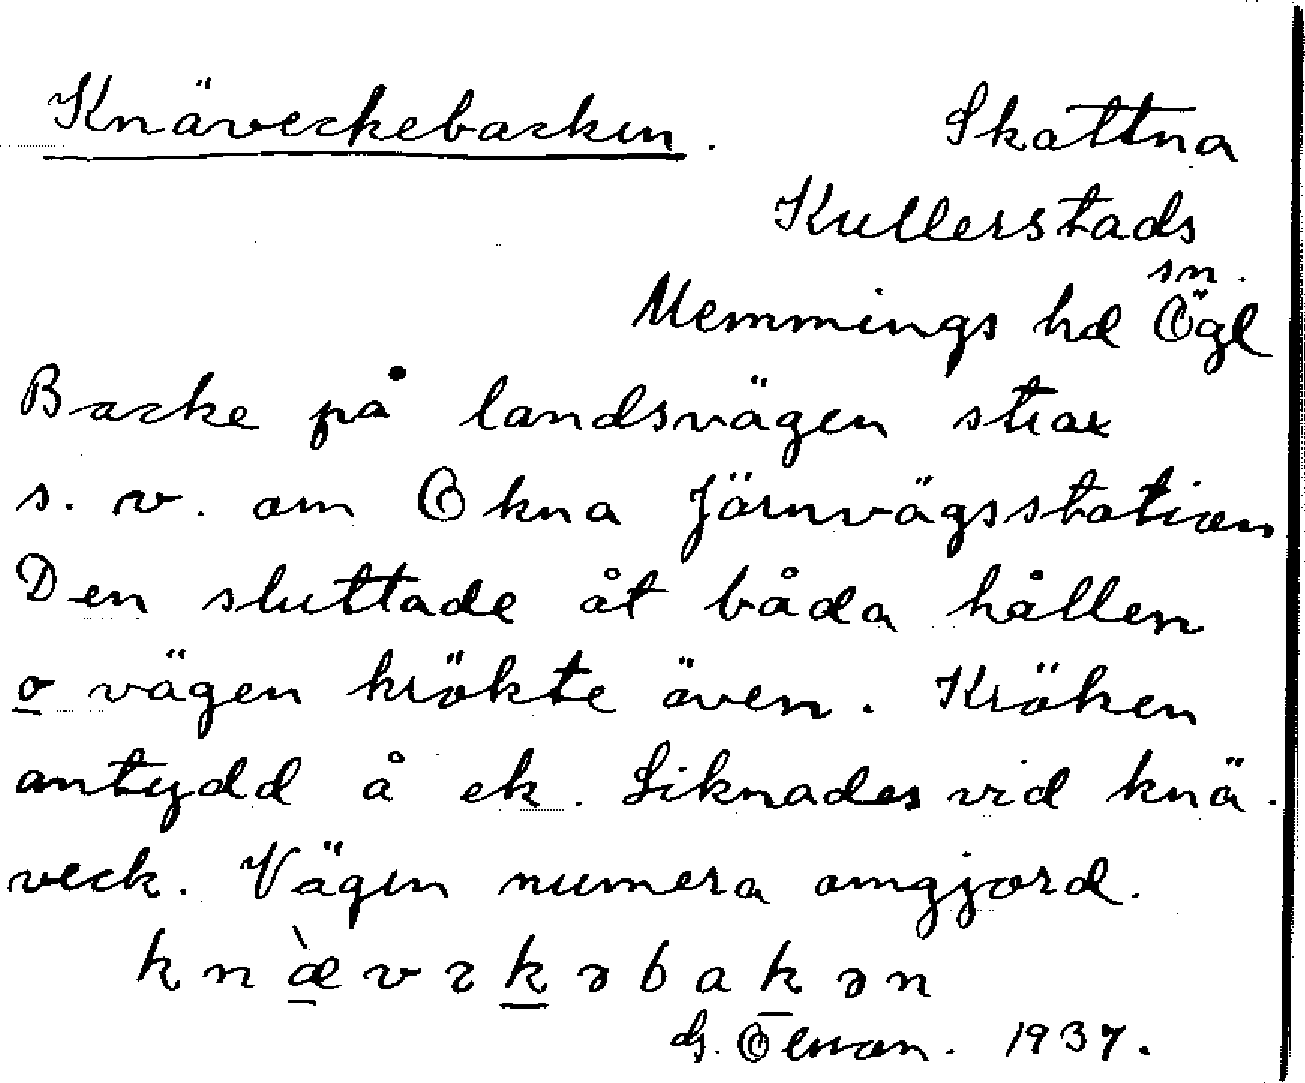 Knäveckebacken. Skattna
Kullerstads
sn.
Memmings hd Ögl
Backe på landsvägen strax
s. v. om Okna Järnvägsstation
Den sluttade åt båda hållen
o vägen krökte även. Kröken
antydd å ek. Liknades vid knä-
veck. Vägen numera omgjord.
knæ̀vɛkəbakən
G. 1937.